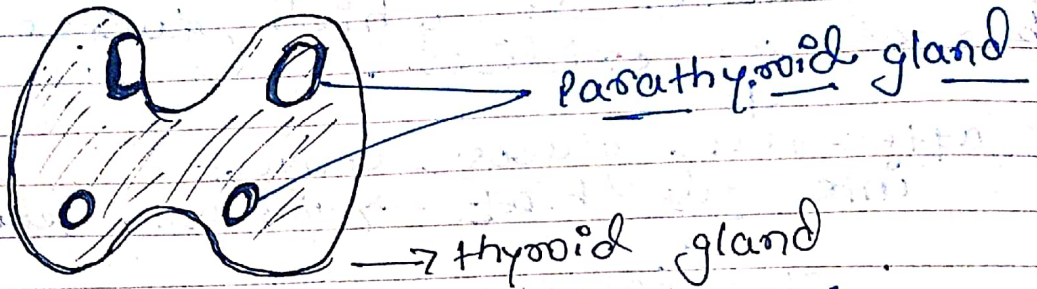 Parathyroid gland
→ thyroid gland